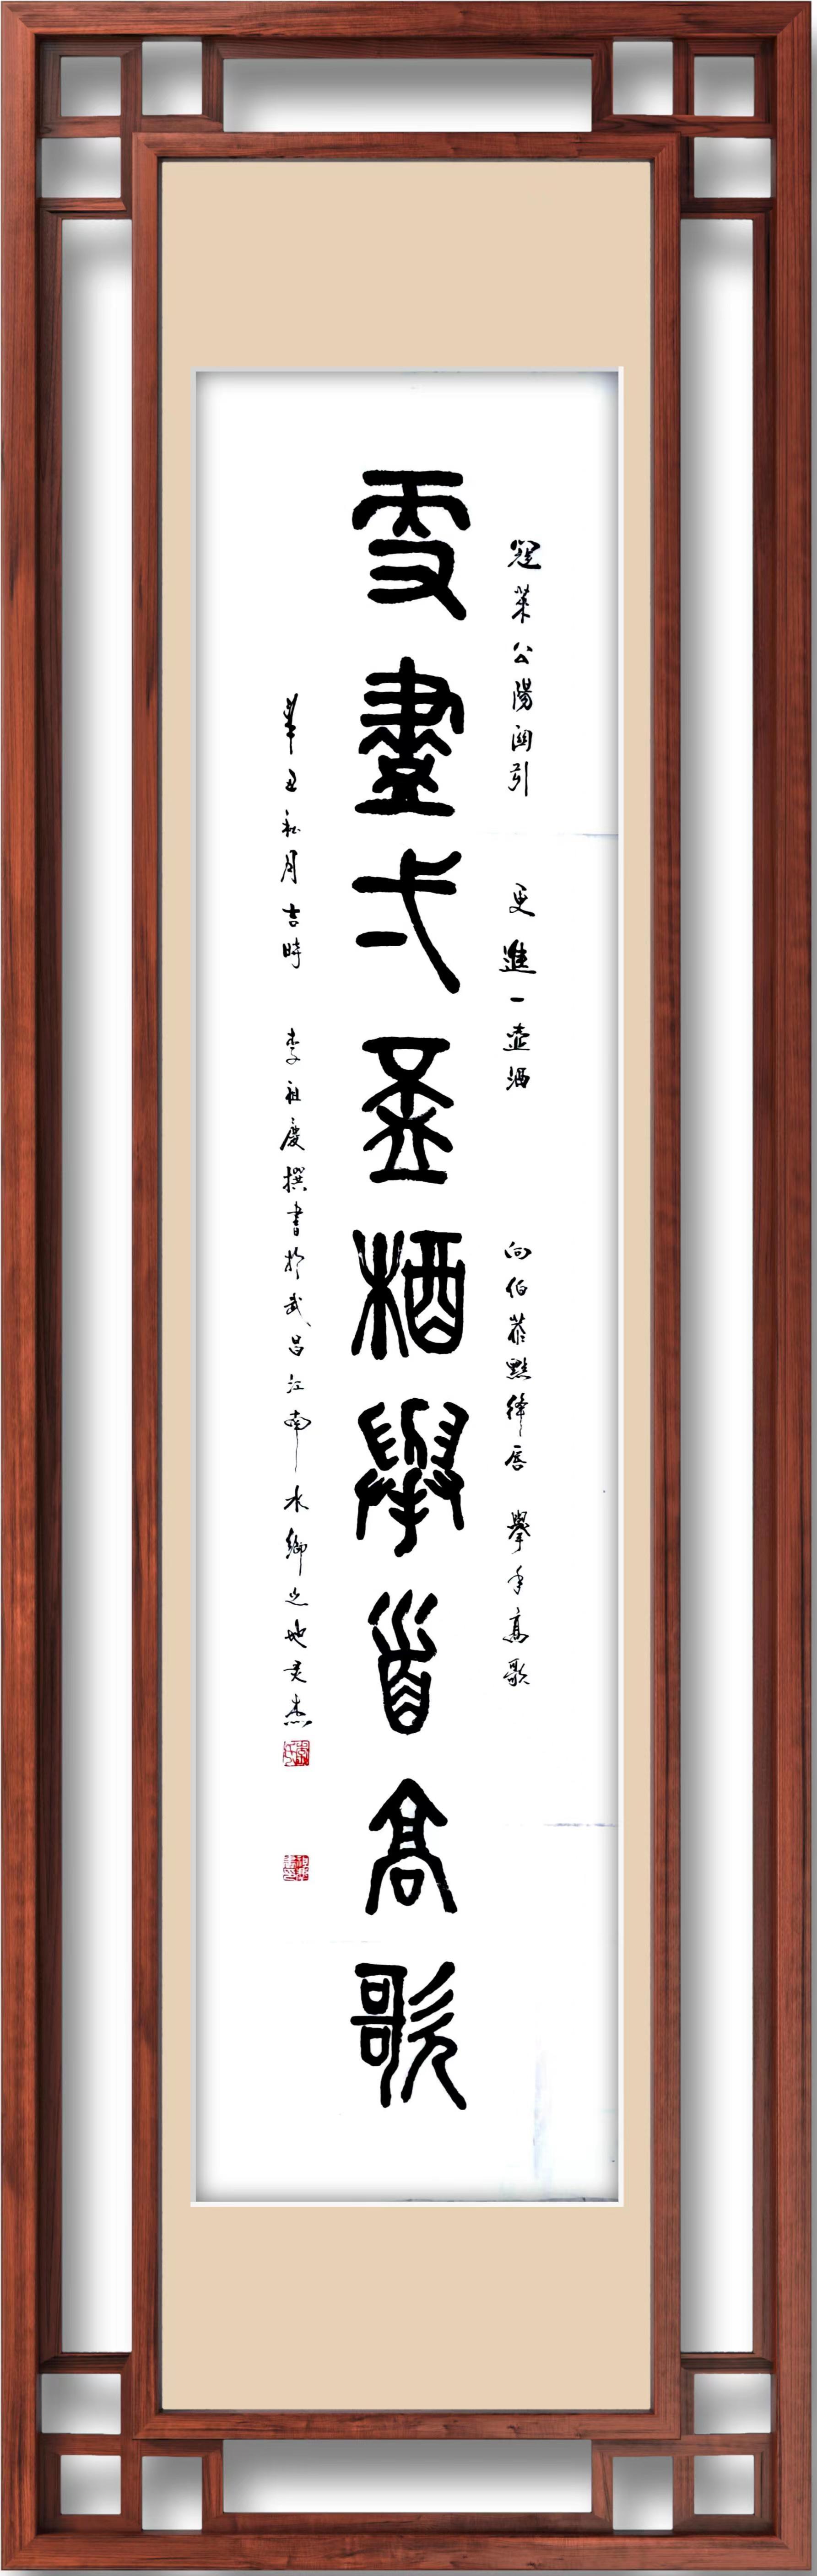 寇萊公陽關引 更進一盃酒 向伯恭點絳唇 舉手高歌
更盡弌盃酒舉首高歌
辛丑秋月吉時 李祖慶撰書於武昌江南水鄉之地灵杰